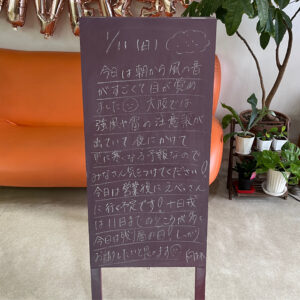 1/11 (日)
今日は朝から風の音
がすごくて目が覚め
ました 大阪では
強風や雷の注意報が
出ていて 夜にかけて
更に寒くなる予報なので
みなさん気をつけてください!
今日は営業後にえべっさん
に行く予定です! 十日戎
は11日までのところが多く
今日は残り福の日! しっかり
お参りしたいと思います